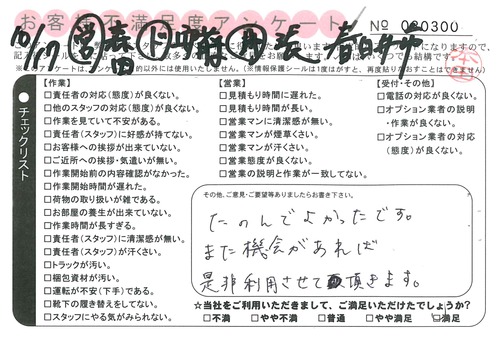 お客様不満足度アンケート
No 020300
10/17
チェックリスト
【作業】
□責任者の対応(態度)が良くない。
□他のスタッフの対応(態度)が良くない。
□作業を見ていて不安がある。
□責任者(スタッフ)に好感が持てない。
□お客様への挨拶が出来ていない。
□ご近所への挨拶・気遣いが無い。
□作業開始前の内容確認がなかった。
□作業開始時間が遅れた。
□荷物の取り扱いが雑である。
□お部屋の養生が出来ていない。
□作業時間が長すぎる。
□責任者(スタッフ)に清潔感が無い。
□責任者(スタッフ)が汗くさい。
□トラックが汚い。
□梱包資材が汚い。
□運転が不安(下手)である。
□靴下の履き替えをしてない。
□スタッフにやる気がみられない。
【営業】
□見積もり時間に遅れた。
□見積もり時間が長い。
□営業マンに清潔感が無い。
□営業マンが煙草くさい。
□営業マンが汗くさい。
□営業態度が良くない。
□営業の説明と作業が一致してない。
【受付・その他】
□電話の対応が良くない。
□オプション業者の説明
・作業が良くない。
□オプション業者の対応
(態度)が良くない。
その他、ご意見・ご要望等ありましたらお書き下さい。
たのんでよかったです。
また機会があれば
是非利用させて頂きます。
☆当社をご利用いただきまして、ご満足いただけたでしょうか?
□不満 □やや不満 □普通 □やや満足 □満足